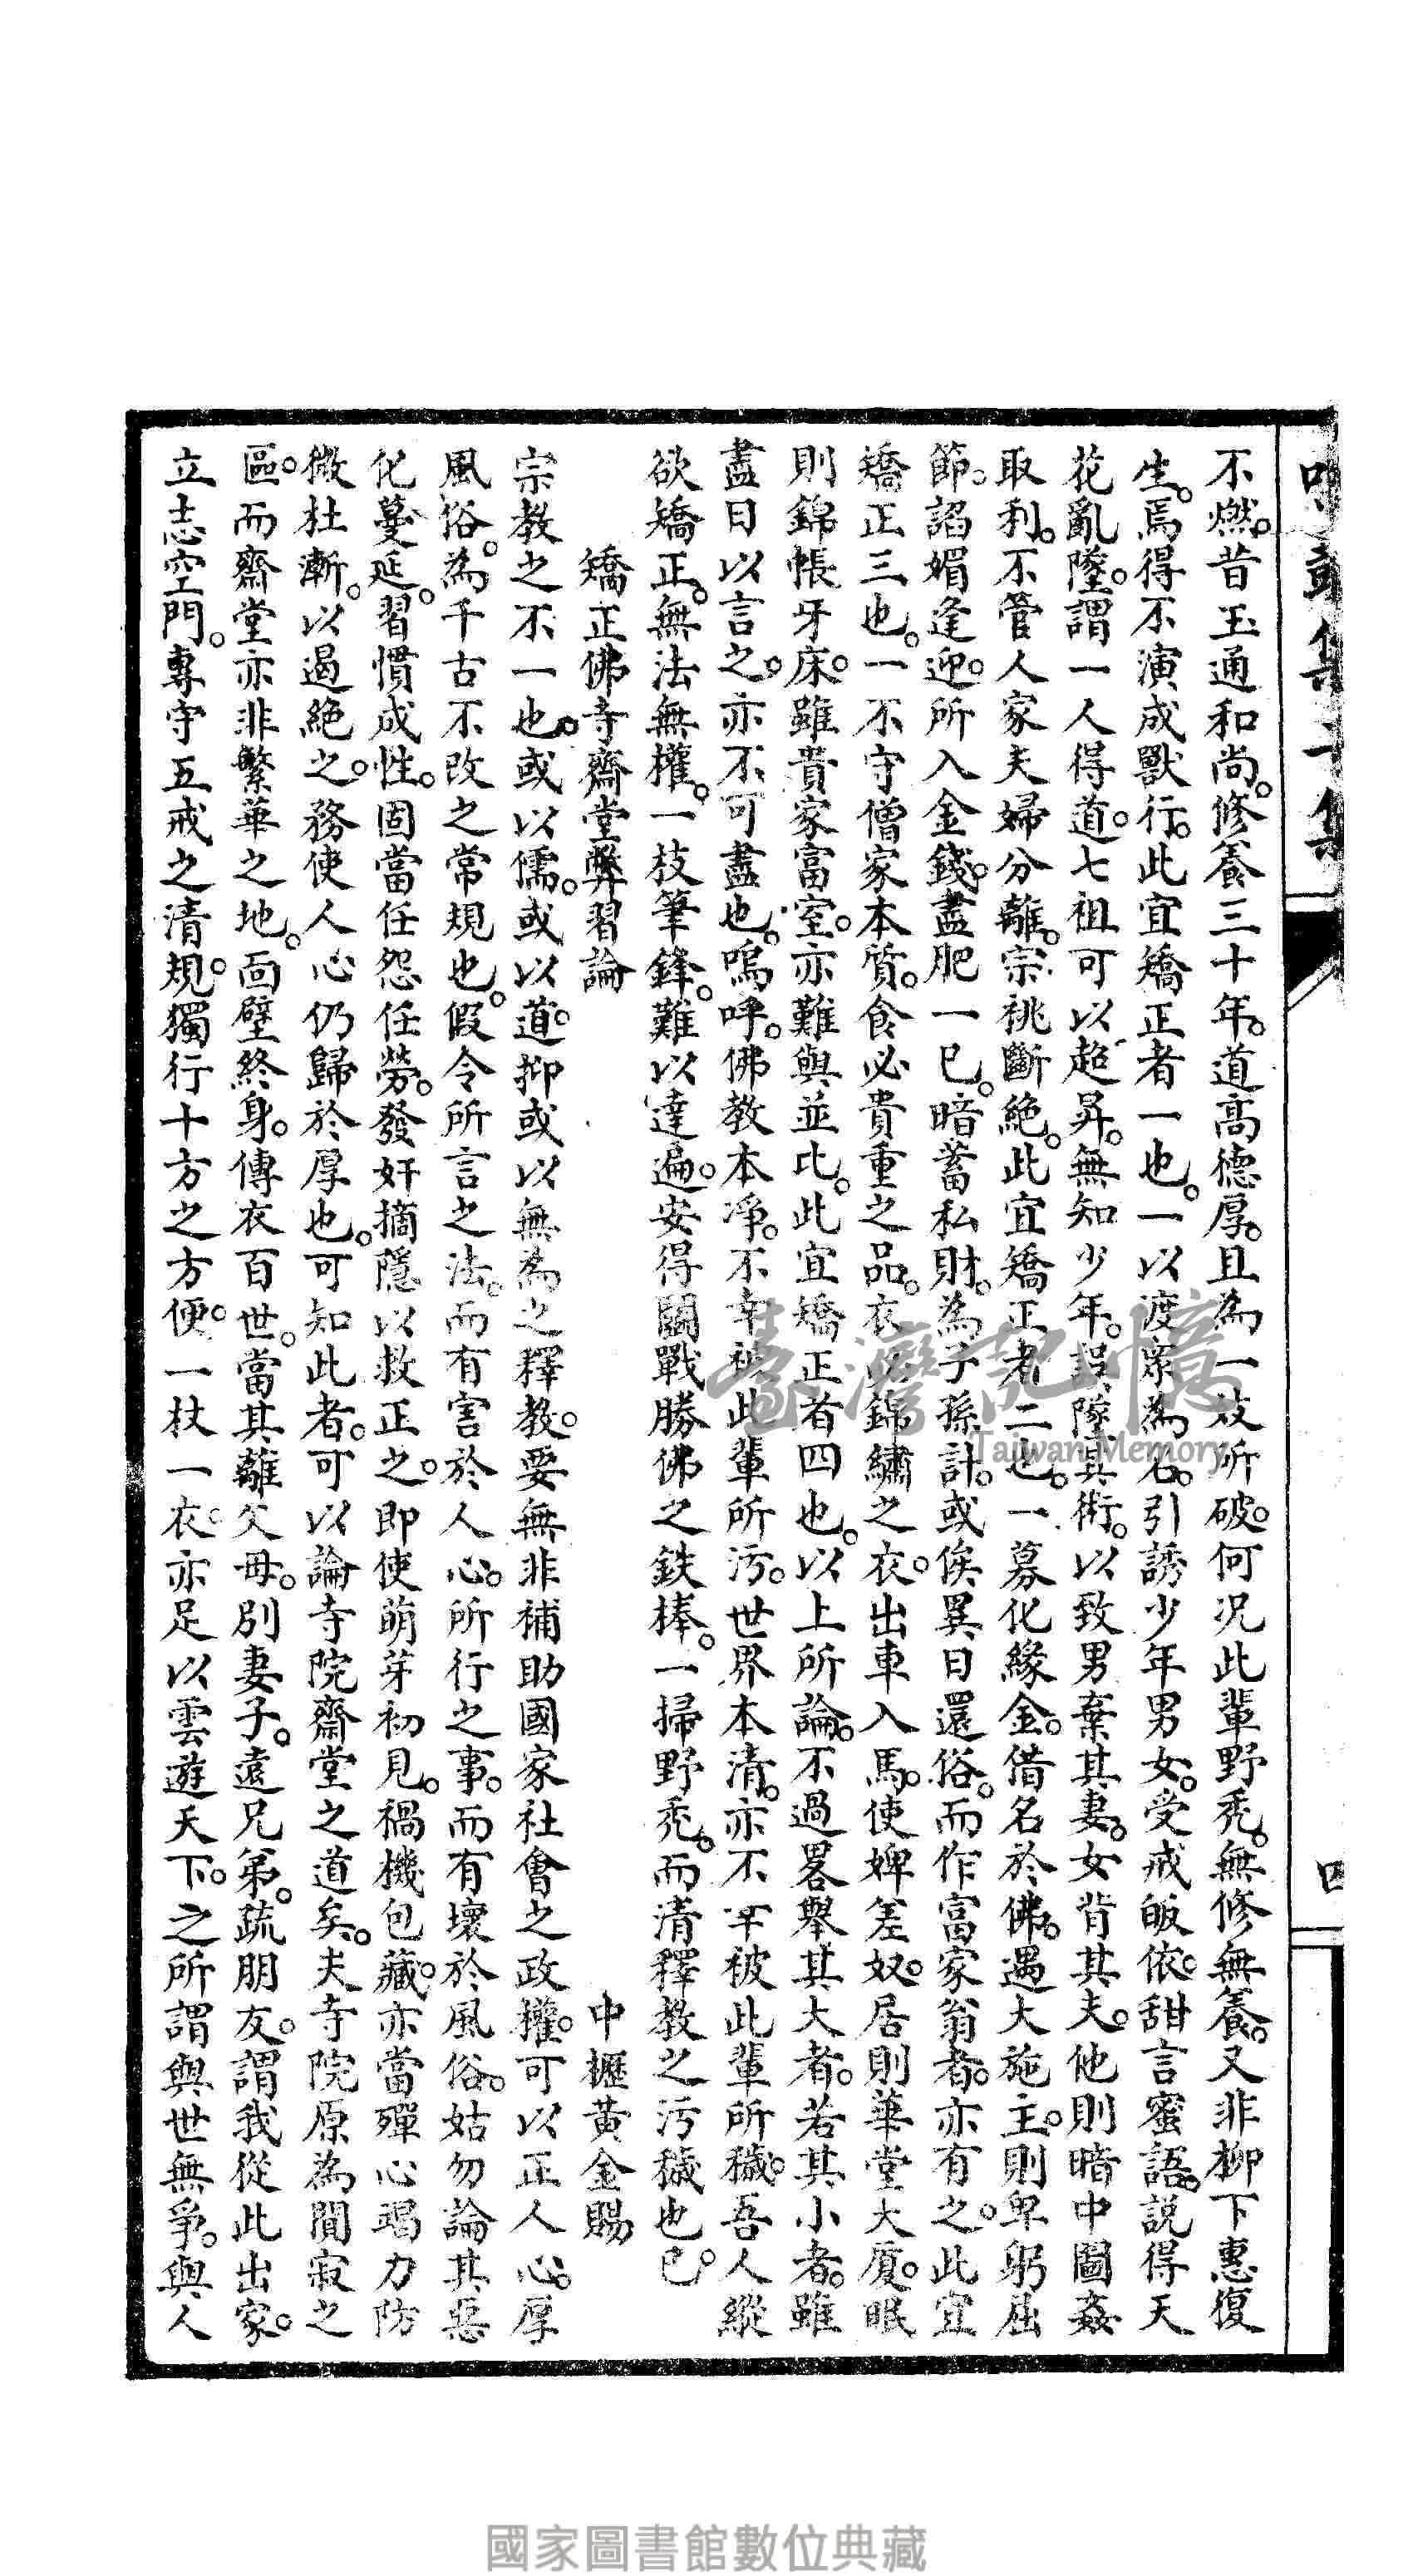 不燃。昔玉通和尚。修養三十年。道高德厚。且為一妓所破。何況此輩野禿。無修無養。又非柳下惠復
生。焉得不演成獸行。此宜矯正者一也。一以渡眾為名。引誘少年男女。受戒皈依。甜言蜜語。說得天
花亂墜。謂一人得道。七祖可以超昇。無知少年。誤墜其術。以致男棄其妻。女背其夫。他則暗中圖姦
取利。不管人家夫婦分離。宗祧斷絕。此宜矯正者二也。一募化緣金。借名於佛。遇大施主。則卑躬屈
節。諂媚逢迎。所入金錢。盡肥一己。暗蓄私財。為子孫計。或俟異日還俗。而作富家翁者。亦有之。此宜
矯正三也。一不守僧家本質。食必貴重之品。衣必錦繡之衣。出車入馬。使婢差奴。居則華堂大厦。眠
則錦帳牙床。雖貴家富室。亦難與並比。此宜矯正者四也。以上所論。不過畧舉其大者。若其小者。雖
盡日以言之。亦不可盡也。嗚呼。佛教本淨。不幸被此輩所污。世界本清。亦不幸被此輩所穢。吾人縱
欲矯正。無法無權。一枝筆鋒。難以達遍。安得鬪戰勝佛之鉄棒。一掃野禿。而清釋教之污穢也已。
矯正佛寺齋堂弊習論
中壢黃金賜
宗教之不一也。或以儒。或以道。抑或以無為之釋教。要無非補助國家社會之政權。可以正人心。厚
風俗。為千古不改之常規也。假令所言之法。而有害於人心。所行之事。而有壞於風俗。姑勿論其惡
化蔓延。習慣成性。固當任怨任勞。發奸摘隱以救正之。即使萌芽初見。禍機包藏。亦當殫心竭力防
微杜漸。以遏絕之。務使人心仍歸於厚也。可知此者。可以論寺院齋堂之道矣。夫寺院原為閒寂之
區。而齋堂亦非繁華之地。面壁終身。傳衣百世。當其離父母。別妻子。遠兄弟。疏朋友。謂我從此出家。
立志空門。專守五戒之清規。獨行十方之方便。一杖一衣。亦足以雲遊天下。之所謂與世無爭。與人
四
臺灣記憶
Taiwan Memory
國家圖書館數位典藏